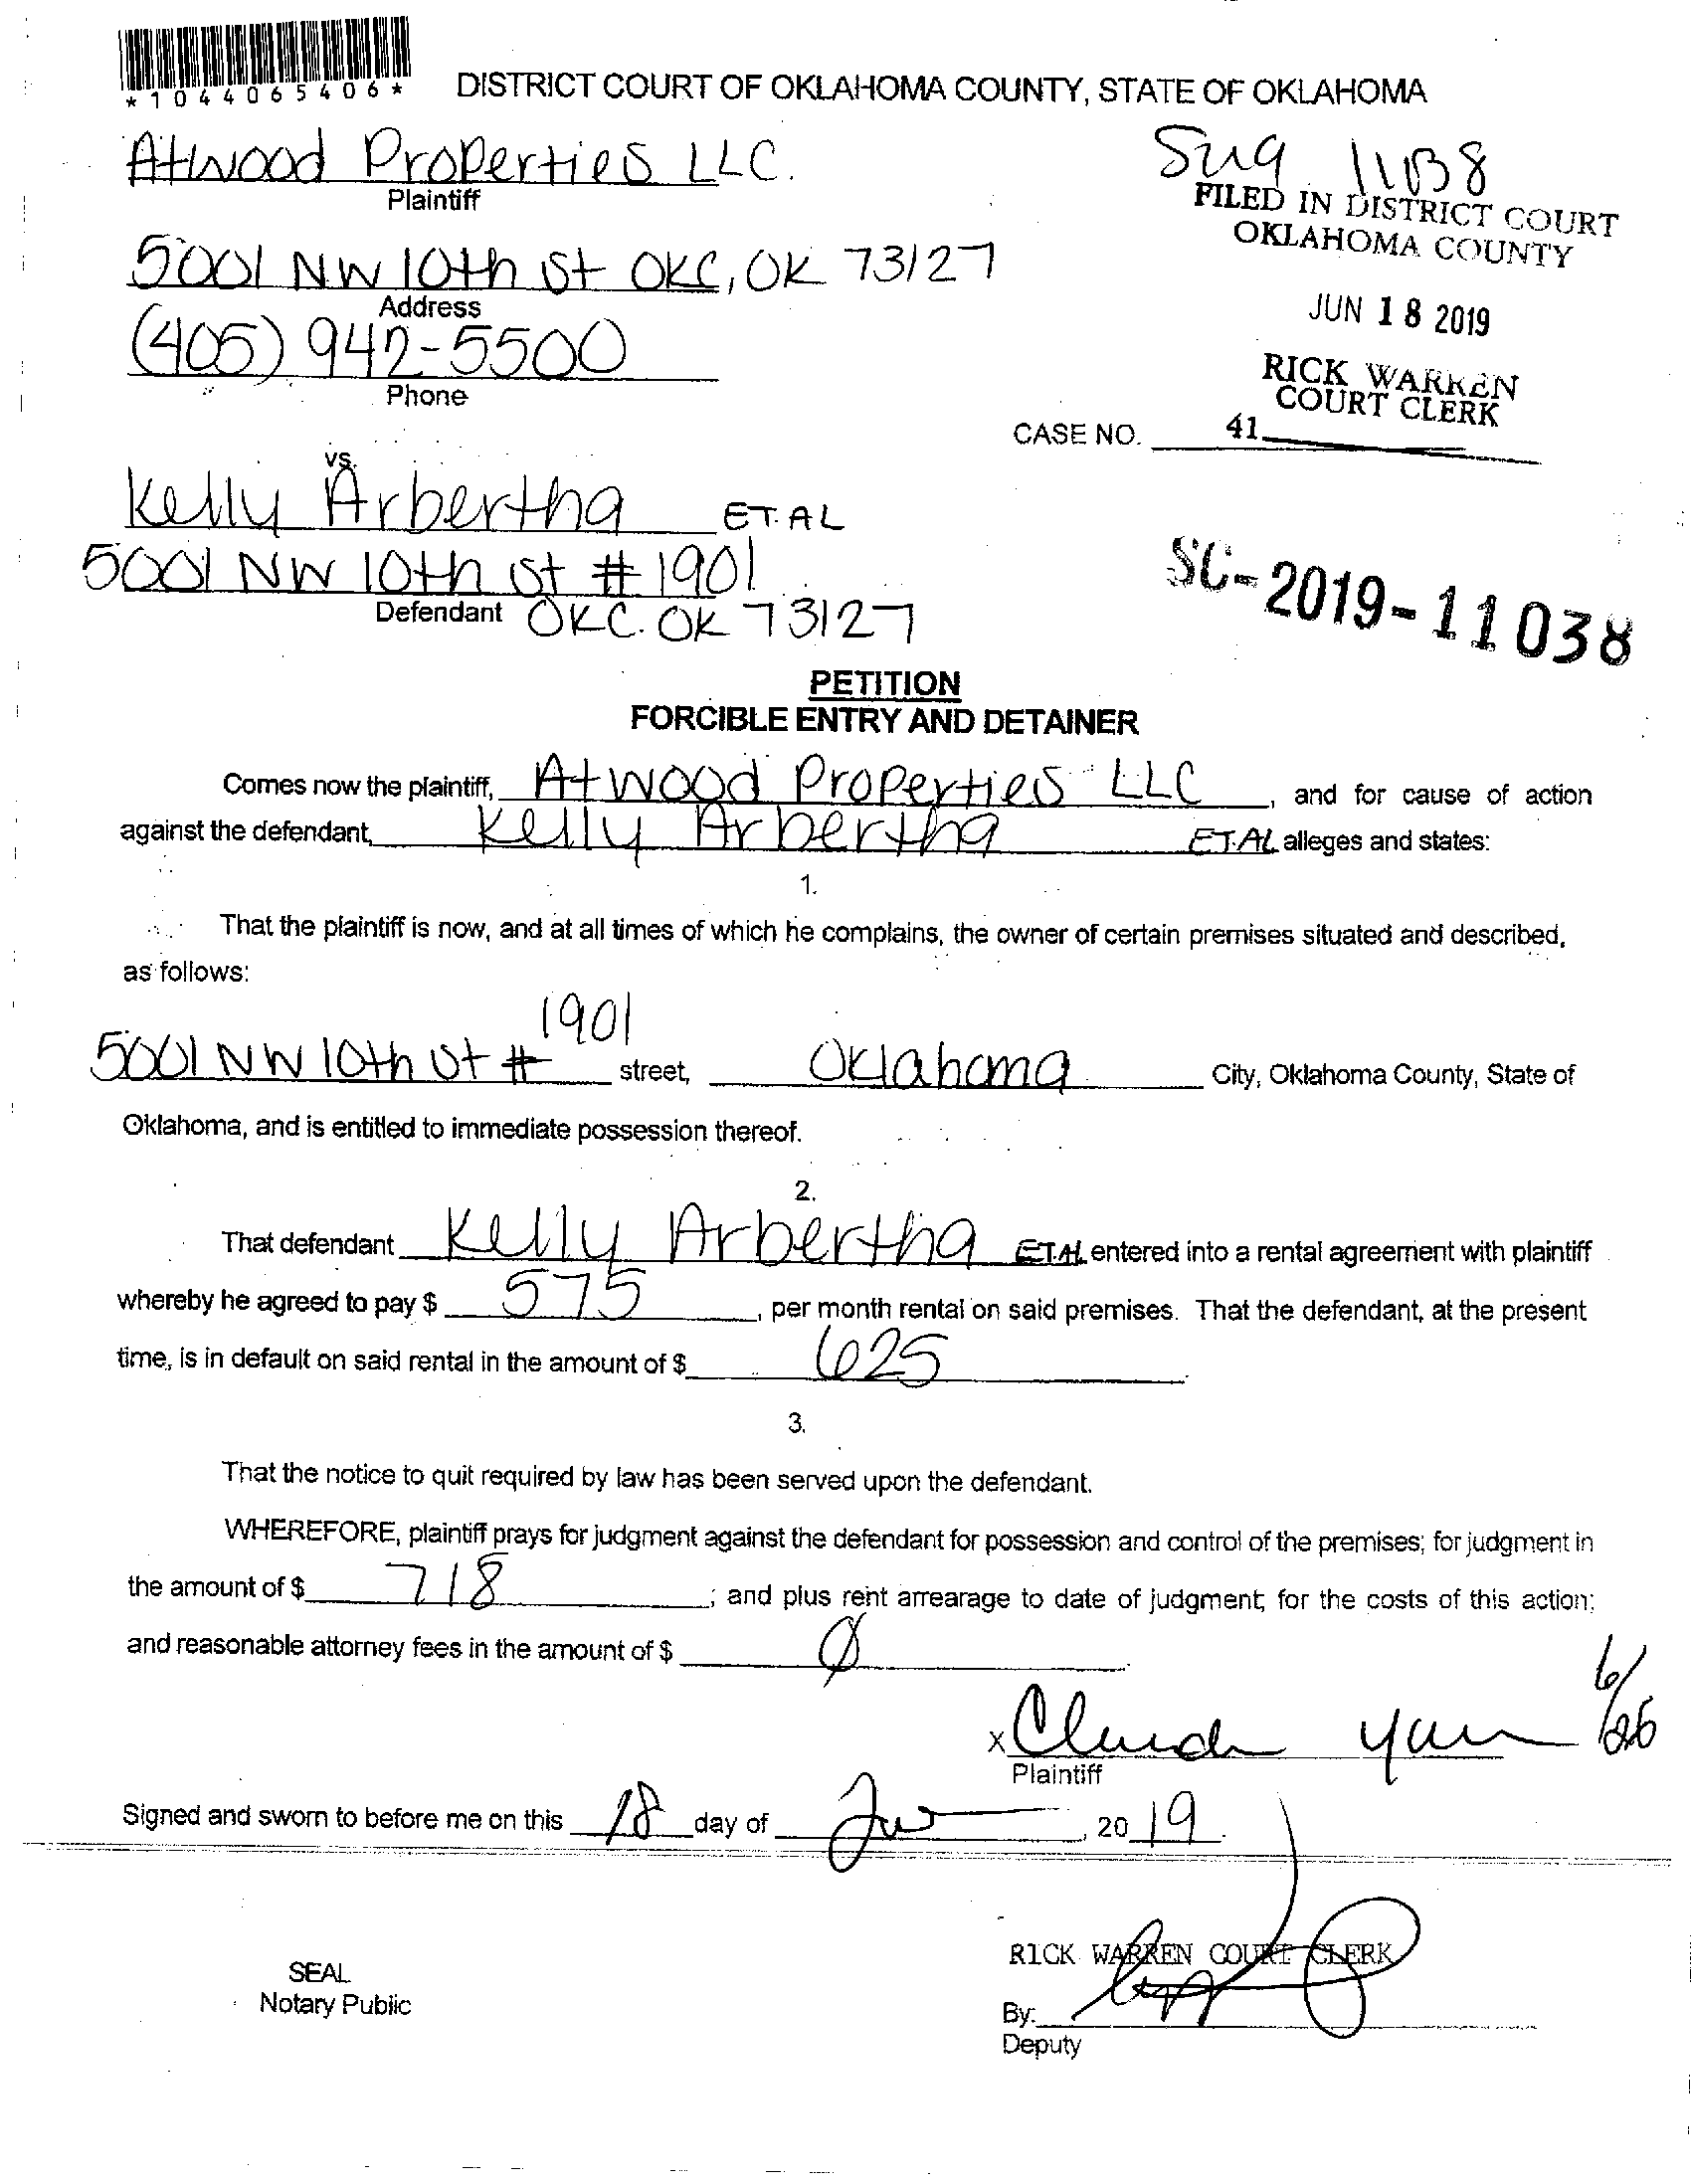 *1044065406*
DISTRICT COURT OF OKLAHOMA COUNTY, STATE OF OKLAHOMA
Atwood Properties LLC.
Plaintiff
FILED IN DISTRICT COURT
OKLAHOMA COUNTY
5001 NW 10th St OKC, OK 73127
Address
JUN 18 2019
(405) 942-5500
Phone
RICK WARREN
COURT CLERK
CASE NO. 41
vs.
Kelly Arbertha ET.AL
5001 NW 10th St # 1901
Defendant OKC. OK 73127
SC-2019-11038
PETITION
FORCIBLE ENTRY AND DETAINER
Comes now the plaintiff, Atwood Properties LLC, and for cause of action
against the defendant, Kelly Arbertha ET.AL alleges and states:
1.
That the plaintiff is now, and at all times of which he complains, the owner of certain premises situated and described,
as follows:
5001 NW 10th St # 1901 street, Oklahoma City, Oklahoma County, State of
Oklahoma, and is entitled to immediate possession thereof.
2.
That defendant Kelly Arbertha ET.AL entered into a rental agreement with plaintiff
whereby he agreed to pay $ 575, per month rental on said premises. That the defendant, at the present
time, is in default on said rental in the amount of $ 625
3.
That the notice to quit required by law has been served upon the defendant.
WHEREFORE, plaintiff prays for judgment against the defendant for possession and control of the premises; for judgment in
the amount of $ 718; and plus rent arrearage to date of judgment; for the costs of this action;
and reasonable attorney fees in the amount of $ Ø
6/26
x
Plaintiff
Signed and sworn to before me on this 18 day of Jun, 2019.
RICK WARREN COURT CLERK
SEAL
Notary Public
By:
Deputy